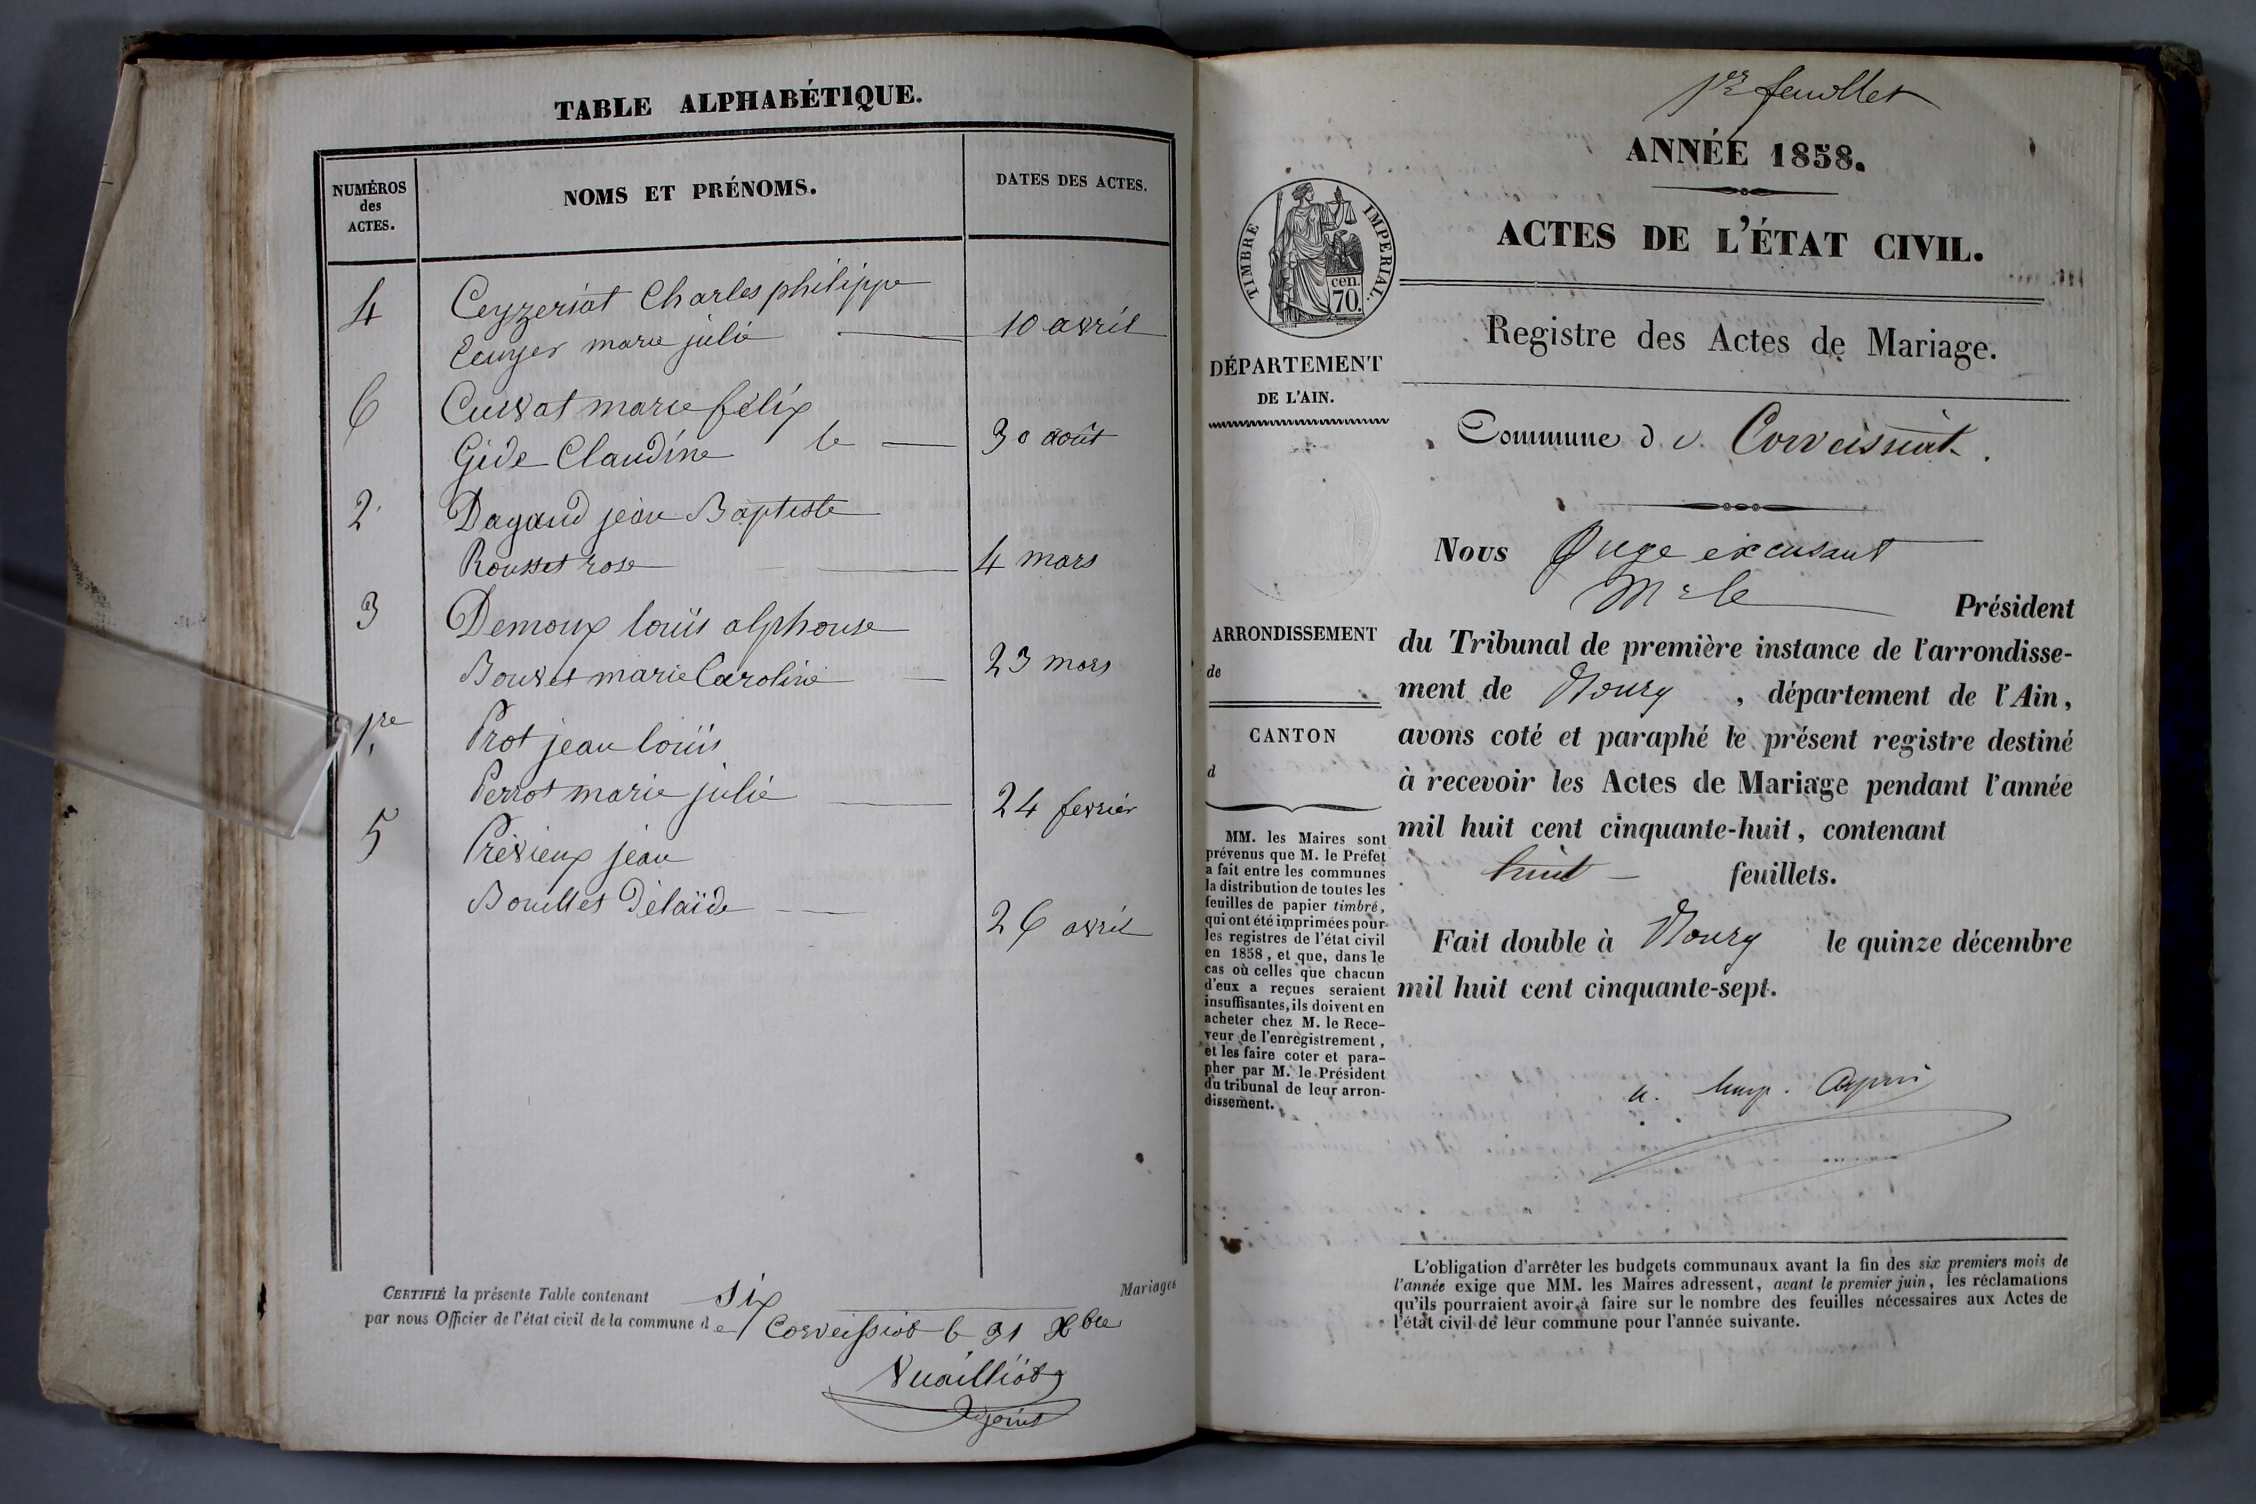 TABLE ALPHABÉTIQUE.
NUMÉROS
des
ACTES.
NOMS ET PRÉNOMS.
DATES DES ACTES.
4 Ceyzeriat Charles philippe
Ecuyer marie julie 10 avril
6 Cuvat marie félix
Gide Claudine le 30 août
2 Dagaud jean Baptiste
Rousset rose 4 mars
3 Demoux louis alphonse
Bouvet marie Caroline 23 mars
1re Prot jean louis
Perrot marie julie 24 fevrier
5 Prévieux jean
Bouillet Délaïde
26 avril
CERTIFIÉ la présente Table contenant six Mariages
par nous Officier de l'état civil de la commune de Corveissiat le 31 Xbre
Vuailliot
adjoint
1er feuillet
ANNÉE 1858.
ACTES DE L'ÉTAT CIVIL.
TIMBRE IMPERIAL.
cen.
70.
Registre des Actes de Mariage.
DÉPARTEMENT
DE L'AIN.
Commune de Corveissiat.
Nous Juge excusant
Mr le Président
ARRONDISSEMENT
de
CANTON
d
du Tribunal de première instance de l'arrondisse-
ment de Bourg, département de l'Ain,
avons coté et paraphé le présent registre destiné
à recevoir les Actes de Mariage pendant l'année
mil huit cent cinquante-huit, contenant
huit feuillets.
Fait double à Bourg le quinze décembre
mil huit cent cinquante-sept.
MM. les Maires sont
prévenus que M. le Préfet
a fait entre les communes
la distribution de toutes les
feuilles de papier timbré,
qui ont été imprimées pour
les registres de l'état civil
en 1858, et que, dans le
cas où celles que chacun
d'eux a reçues seraient
insuffisantes, ils doivent en
acheter chez M. le Rece-
veur de l'enregistrement,
et les faire coter et para-
pher par M. le Président
du tribunal de leur arron-
dissement.
L'obligation d'arrêter les budgets communaux avant la fin des six premiers mois de
l'année exige que MM. les Maires adressent, avant le premier juin, les réclamations
qu'ils pourraient avoir à faire sur le nombre des feuilles nécessaires aux Actes de
l'état civil de leur commune pour l'année suivante.